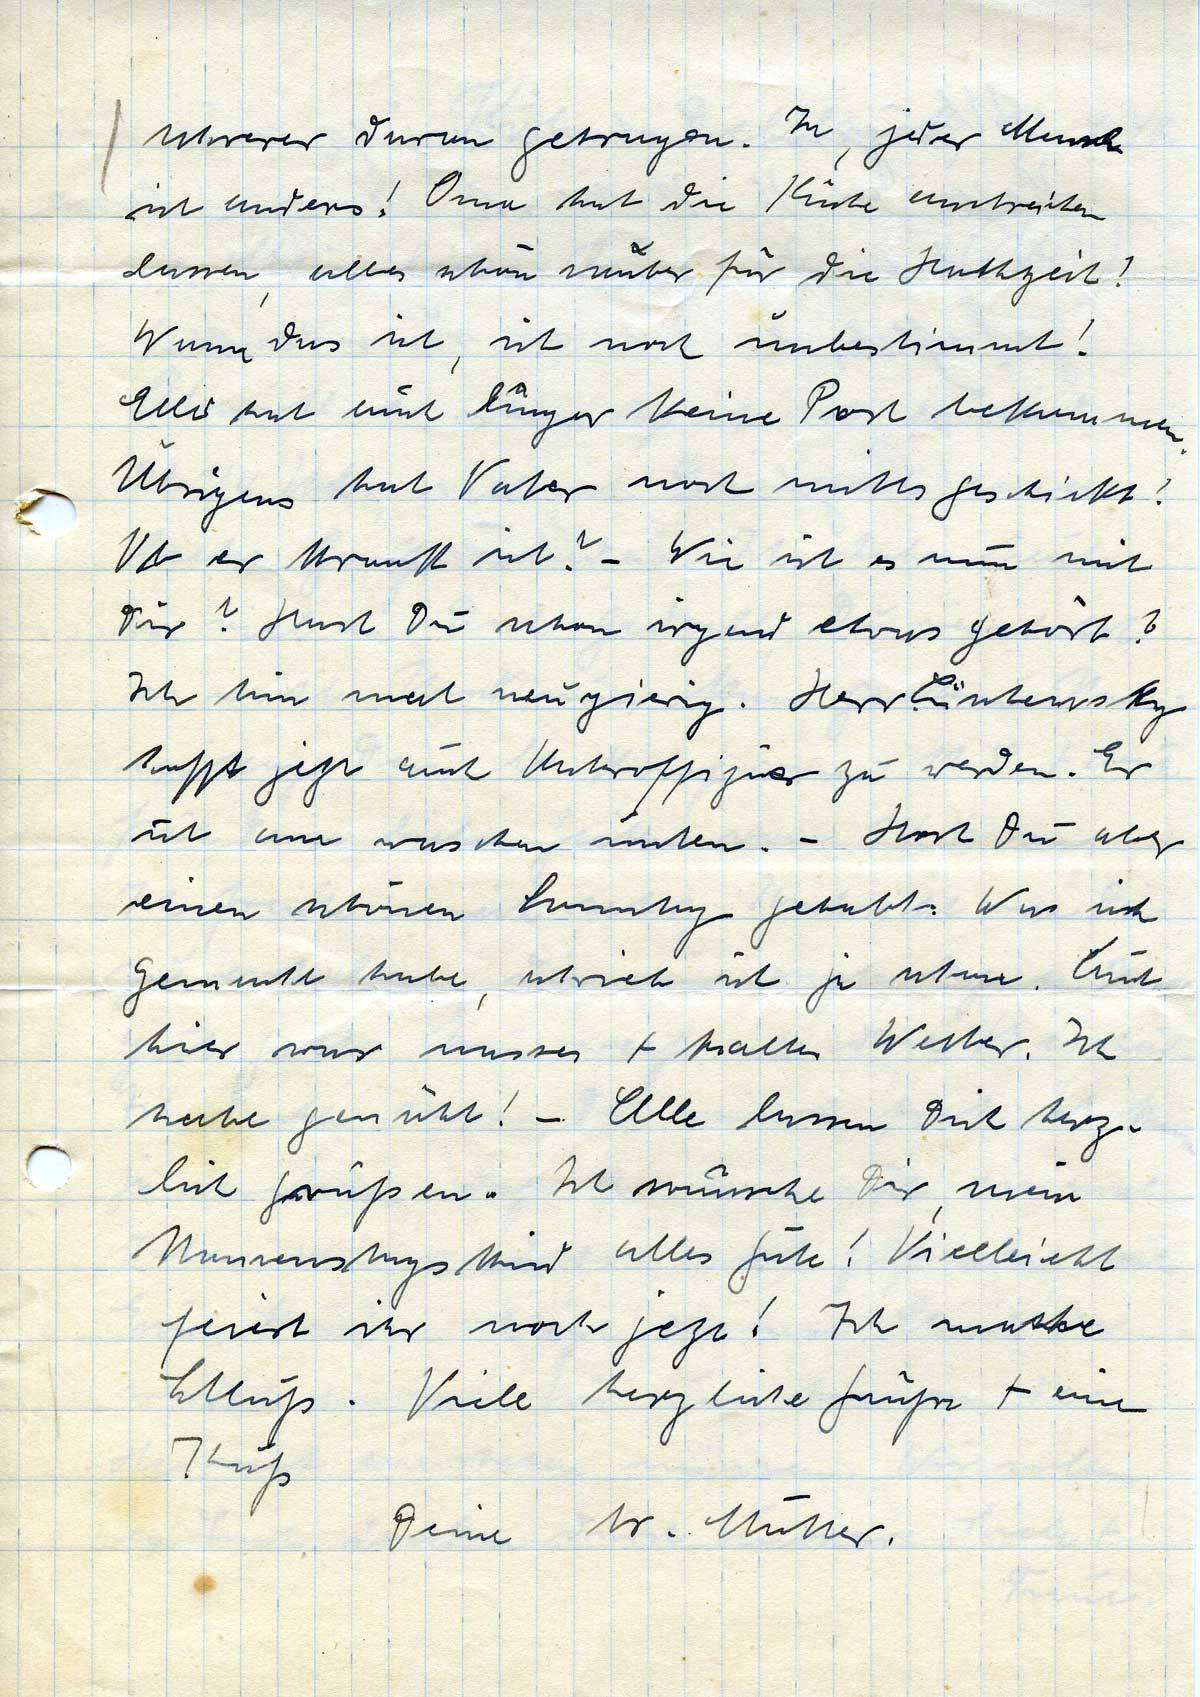 schwerer daran getragen. Ja, jeder Mensch
ist anders! Oma hat die Küche anstreichen
lassen, alles schön sauber für die Hochzeit!
Wann das ist, ist noch unbestimmt!
Elli hat auch länger keine Post bekommen.
Übrigens hat Vater noch nichts geschickt!
Ob er krank ist? – Wie ist es nun mit
Dir? Hast Du schon irgend etwas gehört?
Ich bin mal neugierig. Herr
hofft jetzt auch Unteroffizier zu werden. Er
ist am waschen unten. – Hast Du aber
einen schönen Sonntag gehabt. Was ich
gemacht habe, schrieb ich ja schon. Auch
hier war nasses + kaltes Wetter. Ich
habe genäht! – Alle lassen Dich herz-
lich grüßen. Ich wünsche Dir, mein
Namenstagskind alles Gute! Vielleicht
feiert ihr noch jetzt! Ich mache
Schluß. Viele herzliche Grüße + ein
Kuß
Deine tr. Mutter.